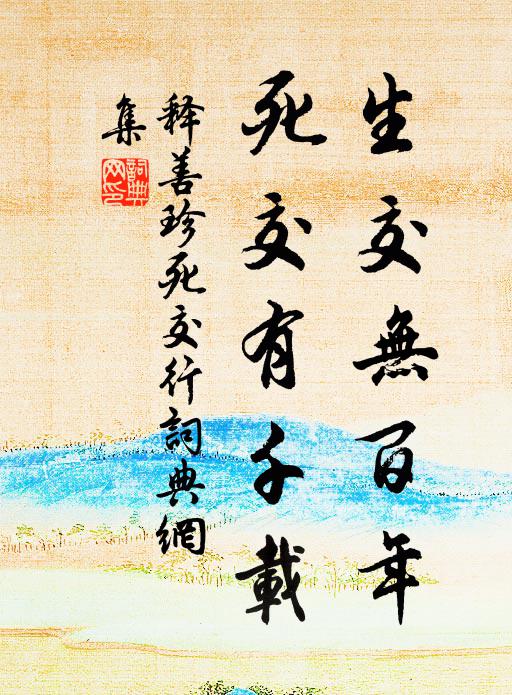 生交無百年
死交有千載
释善珍死交行詞典網
集
詞典
网印